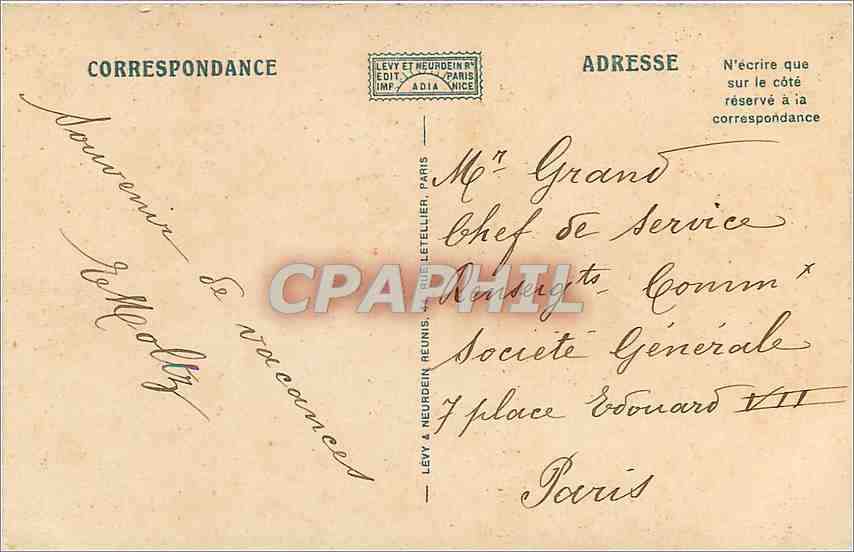 CORRESPONDANCE
LEVY ET NEURDEIN Rs
EDIT. PARIS
IMP. ADIA NICE
ADRESSE
N'écrire que
sur le côté
réservé à la
correspondance
Souvenir de vacances
EMoltz
LÉVY & NEURDEIN RÉUNIS, 44, RUE LETELLIER, PARIS
Mr. Grand
Chef de service
Renseigts. Commx
Société Générale
7 place Edouard VII
Paris
CPAPHIL